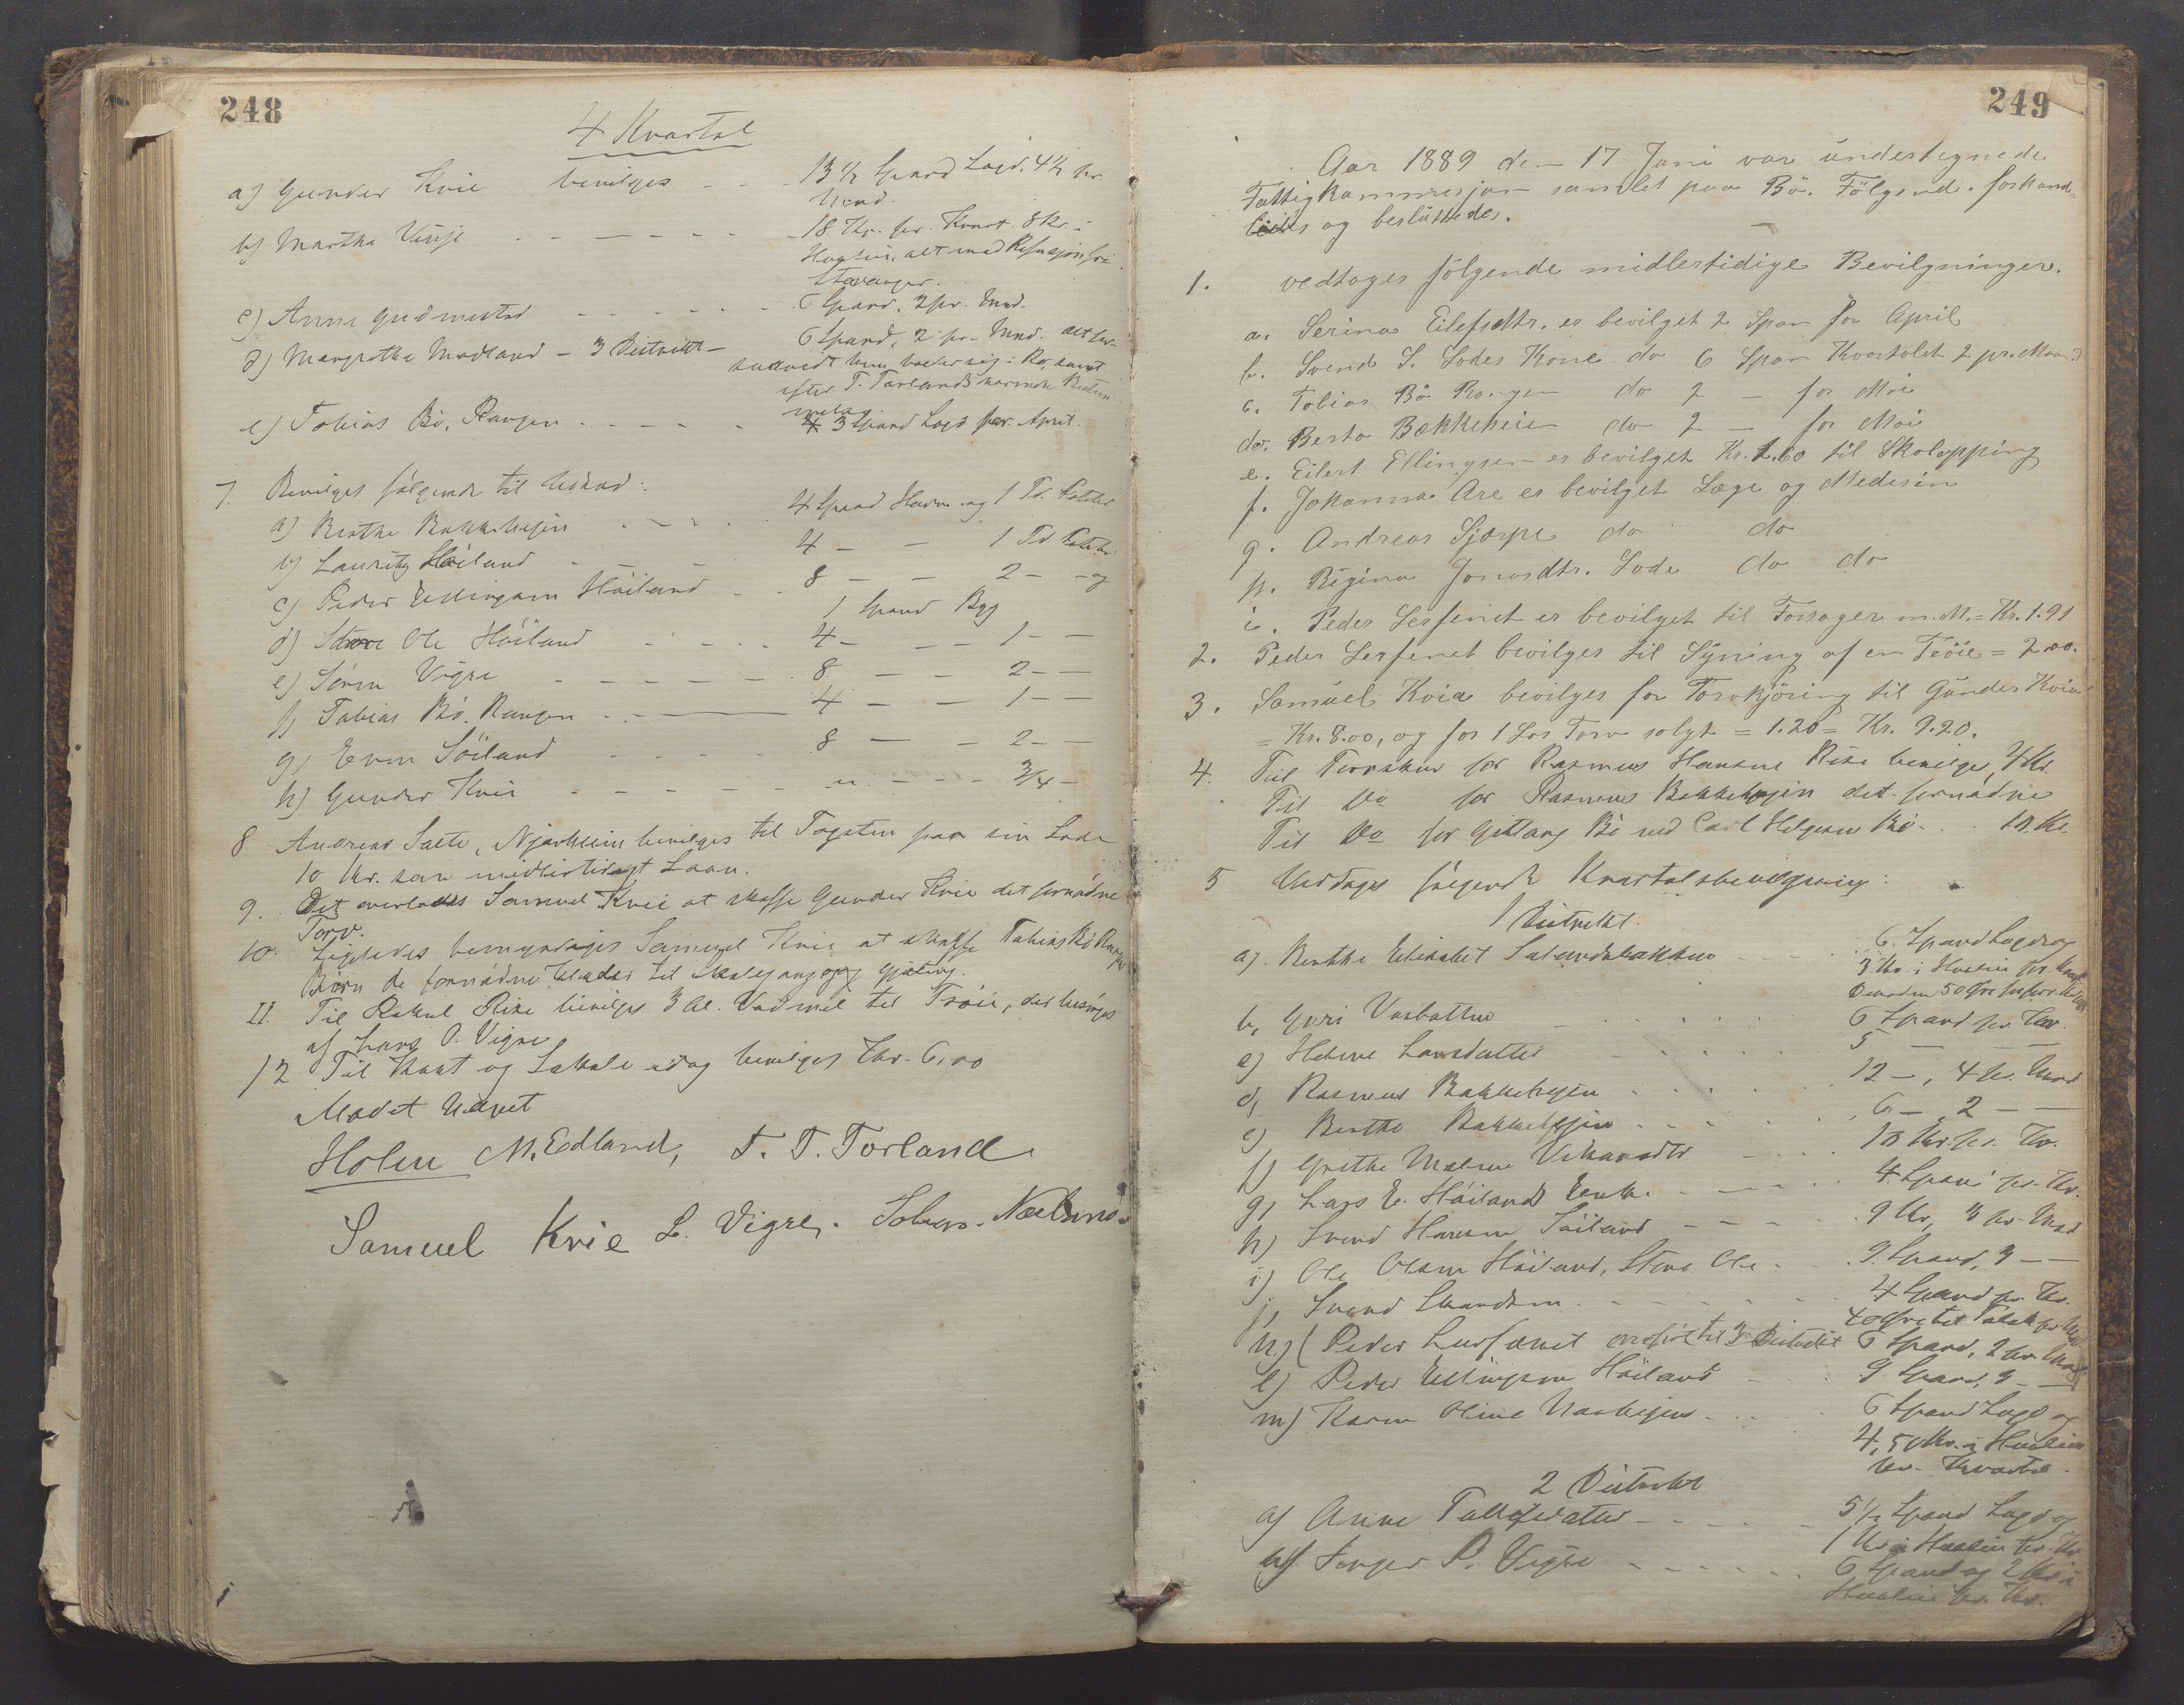 248
4 Kvartal
a) Gunder Kvie bevilges - - 13 1/2 Spand Lagd. 4 1/2 pr.
Mnd.
b) Martha Vinje - - - - - - 18 Kr. pr. Kvart. 8 Kr. i
Husleie, alt med Refusjon fra
Stavanger.
c) Anna Gudmestad - - - - - - 6 Spand, 2 pr. Mnd.
d) Margrethe Madland - 3 Distrikt - 6 Spand, 2 pr. Mnd. alt for-
saavidt hun holder sig i Ro, samt
efter T. Torlands nærmere Bestem
melse
e) Tobias Bö, Raugen - - - - - 3 Spand Lagd for April.
7. Bevilges følgende til Udsæd:
a) Berthe Bakkehejen - - - 4 Spand Havre og 1 Td. Poteter
b) Lauritz Höiland - - - 4 - - 1 Td Poteter
c) Peder Ellingsen Höiland - - 8 - - 2 - - og
1 Spand Byg
d) Store Ole Höiland - - - - 4 - - - 1 - -
e) Sören Vigre - - - - - - 8 - - 2 - -
f) Tobias Bö. Raugen - - 4 - - 1 - -
g) Even Söiland - - - - 8 - - 2 - -
h) Gunder Kvie - - - - - - " - - - 3/4 -
8 Andreas Salte, Njærheim bevilges til Tagsten paa sin Lade
10 Kr. som midlertidigt Laan.
9. Det overlades Samuel Kvie at skaffe Gunder Kvie det fornödne
Torv.
10. Ligeledes bemyndiges Samuel Kvie at skaffe Tobias Bö Raugen
Börn de fornödne Klæder til Skolegang og Gjæting.
11. Til Rakel Rise bevilges 3 Al. Vadmel til Tröie, det besörges
af Lars O. Vigre
12 Til Kost og Lokale idag bevilges Kr. 6,00
Mødet hævet
Holm M. Edland, T. T. Torland
Samuel Kvie L. Vigre,
249
Aar 1889 den 17 Juni var undertegnede
Fattigkommisjon samlet paa Bö. Følgende forhand-
ledes og besluttedes.
1. vedtages følgende midlertidige Bevilgninger.
a. Serina Eilefsdtr. er bevilget 2 Span for April
b. Svend S. Lodes Kone do 6 Span Kvartalet 2 pr. Maaned
c. Tobias Bö Raugen do 2 - for Mai
do. Berta Bakkeheien do 2 - for Mai
e. Eilert Ellingsen er bevilget Kr. 1.60 til Skolapping
f. Johanna Are er bevilget Læge og Medesin
g. Andreas Sjærpe do do
h. Regina Jonasdtr. Lode do do
i. Peder Lerfenet er bevilget til Forsager m.M. = Kr. 1.91
2. Peder Lerfenet bevilges til Syning af en Tröie = 2.00.
3. Samuel Kvia bevilges for Torvkjöring til Gunder Kvia
= Kr. 8.00, og for 1 Las Torv solgt = 1.20 = Kr. 9.20.
4. Til Torvskur for Rasmus Hansen Rise bevilges 4 Kr.
Til Do for Rasmus Bakkehejen det fornødne
Til Do for Gitlaug Bö ved Carl Helgesen Bö. . . 10 Kr.
5 Vedtages følgende Kvartalsbevilgning:
1 Distrikt.
a) Berthe Elisabet - - - 6 Spand Lagd og
3 Kr. i Husleie pr. Kvart.
b, Guri Vasbotten - - - - - - 6 Spand pr. Kv.
c) Helene Larsdatter - - - - 5 - - -
d, Rasmus Bakkehejen - - - - 12 -, 4 pr. Mnd
e) Berthe Bakkehejen - - - - 6 -, 2 - -
f) Grethe Malene - - - - 10 Kr. pr. Kv.
g, Lars E. Höilands Enke - - - - 4 Spand pr. Kv.
h) Svend Hansen Söiland - - - - 9 Kr, 3 pr. Mnd
i) Ole Olsen Höiland, Store Ole - - 9 Spand, 3 - -
j, Svend - - - - - - 4 Spand pr. Kv.
40 Øre til Tobak pr. Mnd
k) (Peder Lerfenet overført til 3 Distrikt 6 Spand, 2 pr. Mnd)
l) Peder Ellingsen Höiland - - 9 Spand, 3 - -
m) Karen Oline - - - 6 Spand Lagd og
4,50 Kr. i Husleie
pr. Kvartal.
2 Distrikt
a) Anne - - - - - 5 1/2 Spand Lagd og
1 Kr. i Husleie pr. Kv
b) P. Vigre - - - - - - 6 Spand og 2 Kr i
Husleie pr. Kv.